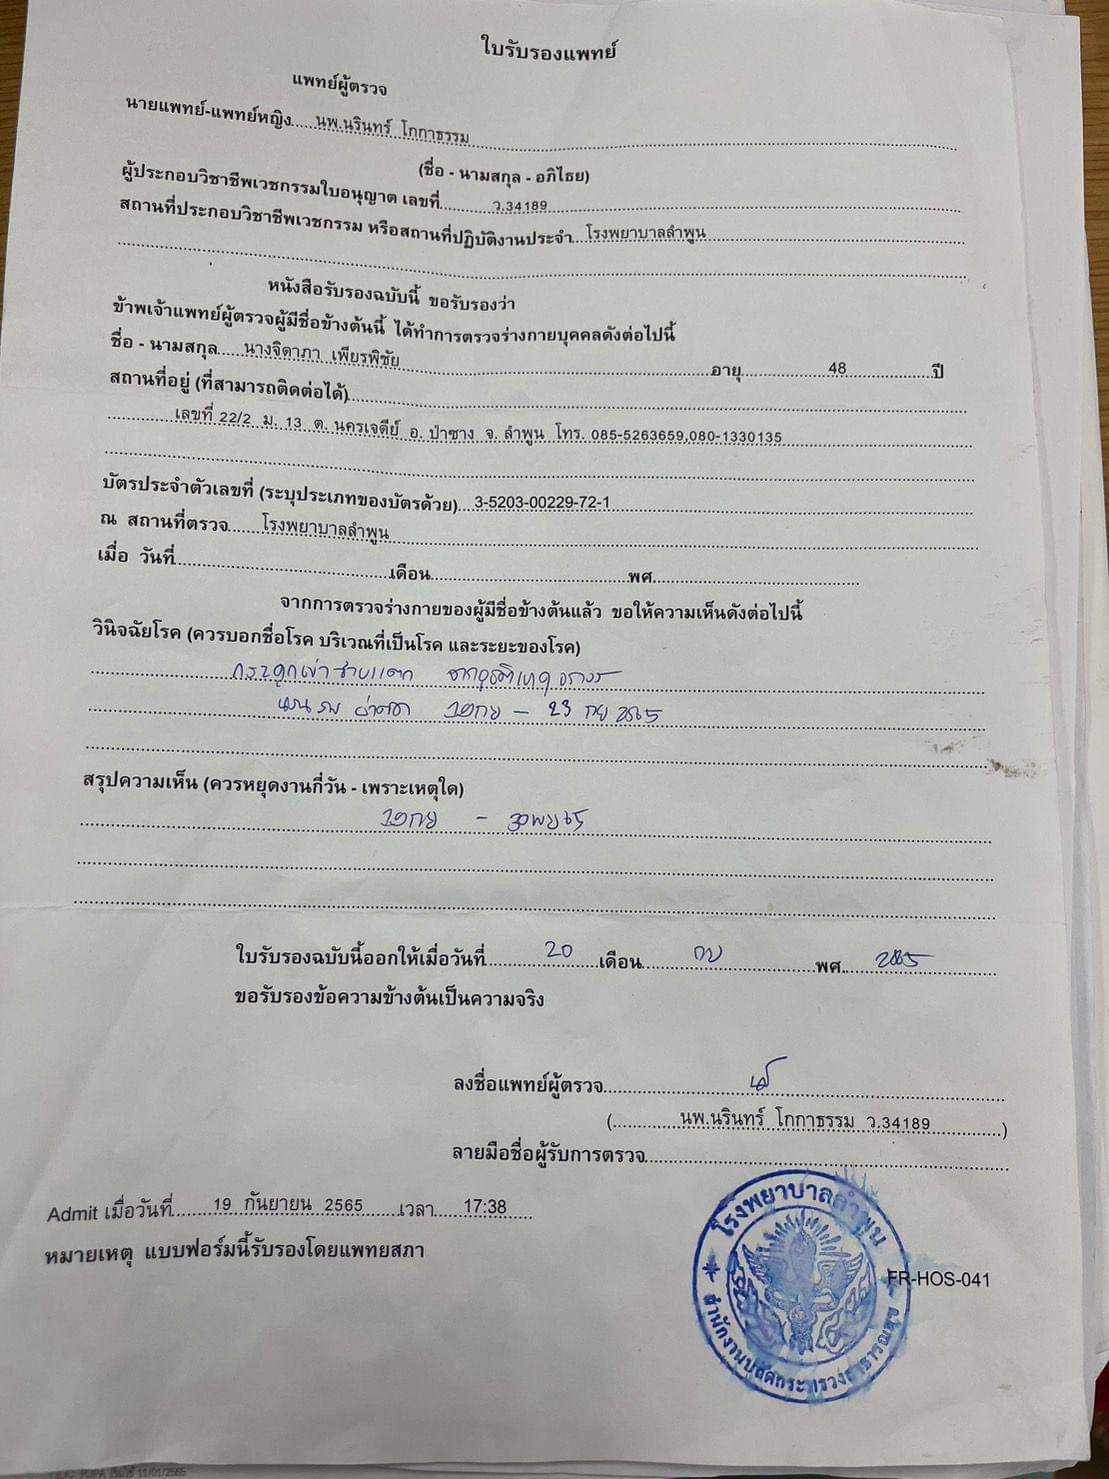 ใบรับรองแพทย์
แพทย์ผู้ตรวจ
นายแพทย์-แพทย์หญิง นพ.นรินทร์ โกกาธรรม
(ชื่อ - นามสกุล - อภิไธย)
ผู้ประกอบวิชาชีพเวชกรรมใบอนุญาต เลขที่ ว.34189
สถานที่ประกอบวิชาชีพเวชกรรม หรือสถานที่ปฏิบัติงานประจำ โรงพยาบาลลำพูน
หนังสือรับรองฉบับนี้ ขอรับรองว่า
ข้าพเจ้าแพทย์ผู้ตรวจผู้มีชื่อข้างต้นนี้ ได้ทำการตรวจร่างกายบุคคลดังต่อไปนี้
ชื่อ - นามสกุล นางจิดาภา เพียรพิชัย อายุ 48 ปี
สถานที่อยู่ (ที่สามารถติดต่อได้)
เลขที่ 22/2 ม. 13 ต. นครเจดีย์ อ. ป่าซาง จ. ลำพูน โทร. 085-5263659,080-1330135
บัตรประจำตัวเลขที่ (ระบุประเภทของบัตรด้วย) 3-5203-00229-72-1
ณ สถานที่ตรวจ โรงพยาบาลลำพูน
เมื่อ วันที่ เดือน พศ.
จากการตรวจร่างกายของผู้มีชื่อข้างต้นแล้ว ขอให้ความเห็นดังต่อไปนี้
วินิจฉัยโรค (ควรบอกชื่อโรค บริเวณที่เป็นโรค และระยะของโรค)
กระดูกเข่าซ้ายแตก จากอุบัติเหตุจราจร
นอน รพ ผ่าตัด 19 กย - 23 กย 2565
สรุปความเห็น (ควรหยุดงานกี่วัน - เพราะเหตุใด)
19 กย - 30 พย 65
ใบรับรองฉบับนี้ออกให้เมื่อวันที่ 20 เดือน กย พศ. 2565
ขอรับรองข้อความข้างต้นเป็นความจริง
ลงชื่อแพทย์ผู้ตรวจ
( นพ.นรินทร์ โกกาธรรม ว.34189 )
ลายมือชื่อผู้รับการตรวจ
Admit เมื่อวันที่ 19 กันยายน 2565 เวลา 17:38
หมายเหตุ แบบฟอร์มนี้รับรองโดยแพทยสภา
โรงพยาบาลลำพูน
FR-HOS-041
สำนักงานปลัดกระทรวงสาธารณสุข